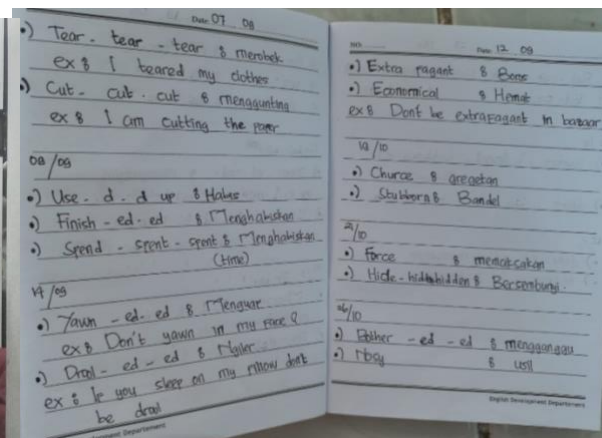 Date: 07 09
•) Tear - tear - tear : merobek
ex : I teared my clothes
•) Cut - cut - cut : menggunting
ex : I am cutting the paper
08/09
•) Use - d - d up : Habis
•) Finish - ed - ed : Menghabiskan
•) Spend - spent - spent : Menghabiskan
(time)
14/09
•) Yawn - ed - ed : Menguap
ex : Don't yawn in my face
•) Drool - ed - ed : Ngiler
ex : If you sleep on my pillow dont
be drool
English Development Departement
NO. Date: 12 09
•) Extra pagant : Boros
•) Economical : Hemat
ex : Dont be extrapagant in bazaar
19/10
•) : gregetan
•) Stubborn : Bandel
2/10
•) Force : memaksakan
•) Hide - hid - hidden : Bersembunyi.
06/10
•) Bother - ed - ed : menggangau
•) : usil
English Development Departement